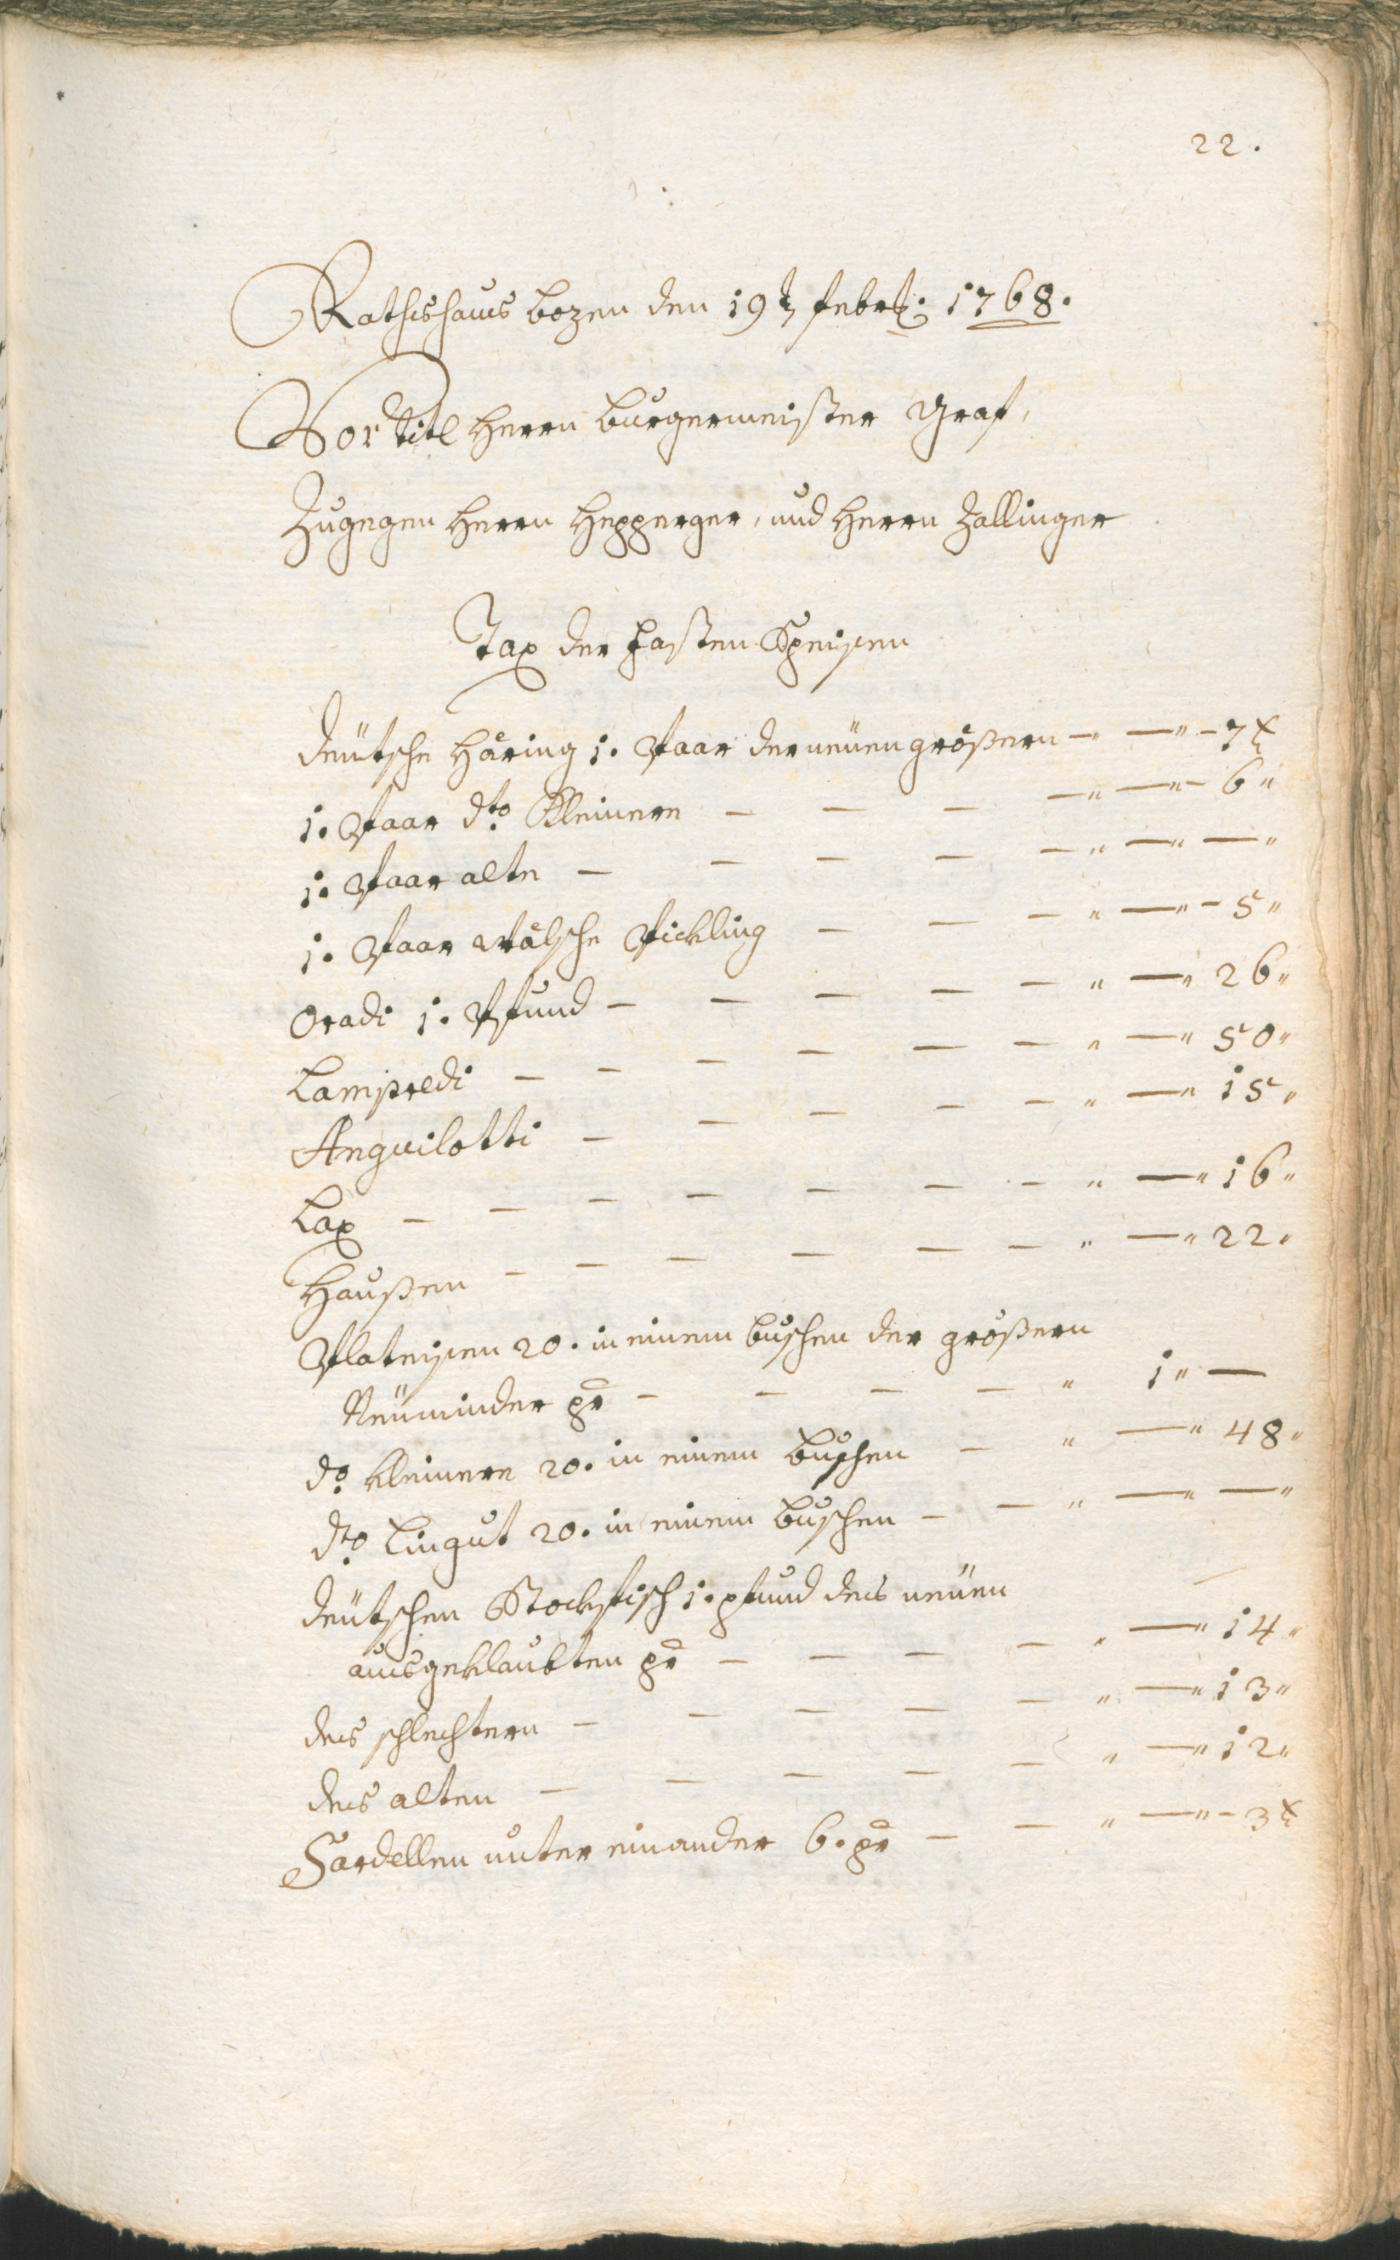 22.
Rathshaus Bozen den 19t febr: 1768.
Vor Titl Herrn Burgermeister Graf,
Zugegen Herrn Hepperger, und Herrn Zallinger
Tax der Fasten Speisen
Deütsche Häring 1. Paar der neüen größern — —"—7 x
1. Paar dto Kleinere — — — —" —"— 6"
1. Paar alte — — — — —" —" —"
1. Paar wälsche Pickling — — — " —"— 5"
Oradi 1. Pfund — — — — — " —" 26"
Lampredi — — — — — — " —" 50"
Anguilotti — — — — — " —" 15"
Lax — — — — — — — " —" 16"
Haußen — — — — — — " —" 22"
Plateisen 20. in einem buschen der größern
Neüminder pr — — — — " 1" —
do kleinere 20. in einem buschen — " —" 48"
dto Lingut 20. in einem buschen — — " —" —"
Deütschen Stockfisch 1. pfund des neüen
ausgeklaubten pr — — — — " —" 14"
des schlechtern — — — — — " —" 13"
des alten — — — — — " —" 12"
Sardellen unter einander 6. pr — — " —"— 3 x